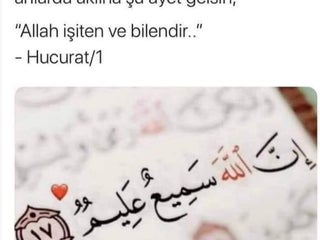 anlarda aklına şu ayet gelsin;
“Allah işiten ve bilendir..”
- Hucurat/1
إِنَّ اللَّهَ سَمِيعٌ عَلِيمٌ
١٧